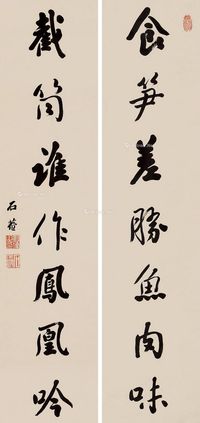 食笋差勝魚肉味
截筒誰作鳳凰吟
石菴